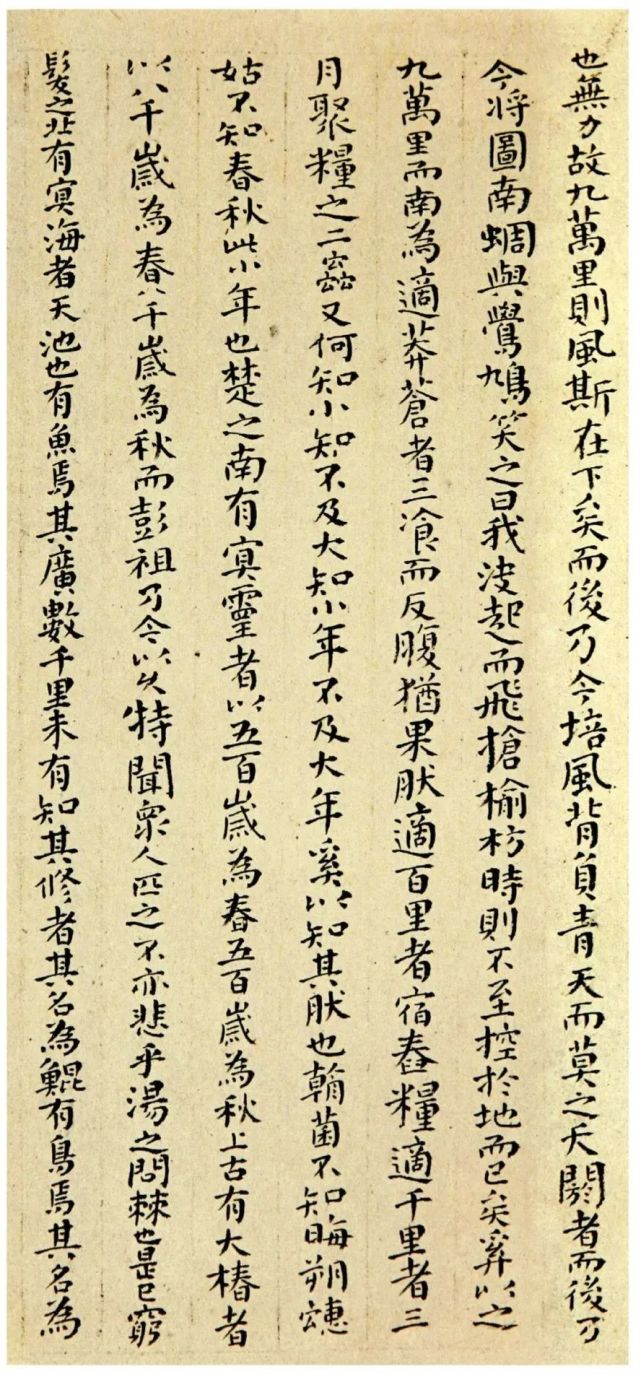 也無力故九萬里則風斯在下矣而後乃今培風背負青天而莫之夭閼者而後乃
今將圖南蜩與鷽鳩笑之曰我決起而飛搶榆枋時則不至控於地而已矣奚以之
九萬里而南為適莽蒼者三飡而反腹猶果肰適百里者宿舂糧適千里者三
月聚糧之二蟲又何知小知不及大知小年不及大年奚以知其肰也朝菌不知晦朔蟪
姑不知春秋此小年也楚之南有冥靈者以五百歲為春五百歲為秋上古有大椿者
以八千歲為春八千歲為秋而彭祖乃今以久特聞衆人匹之不亦悲乎湯之問棘也是已窮
髮之北有冥海者天池也有魚焉其廣數千里未有知其修者其名為鯤有鳥焉其名為